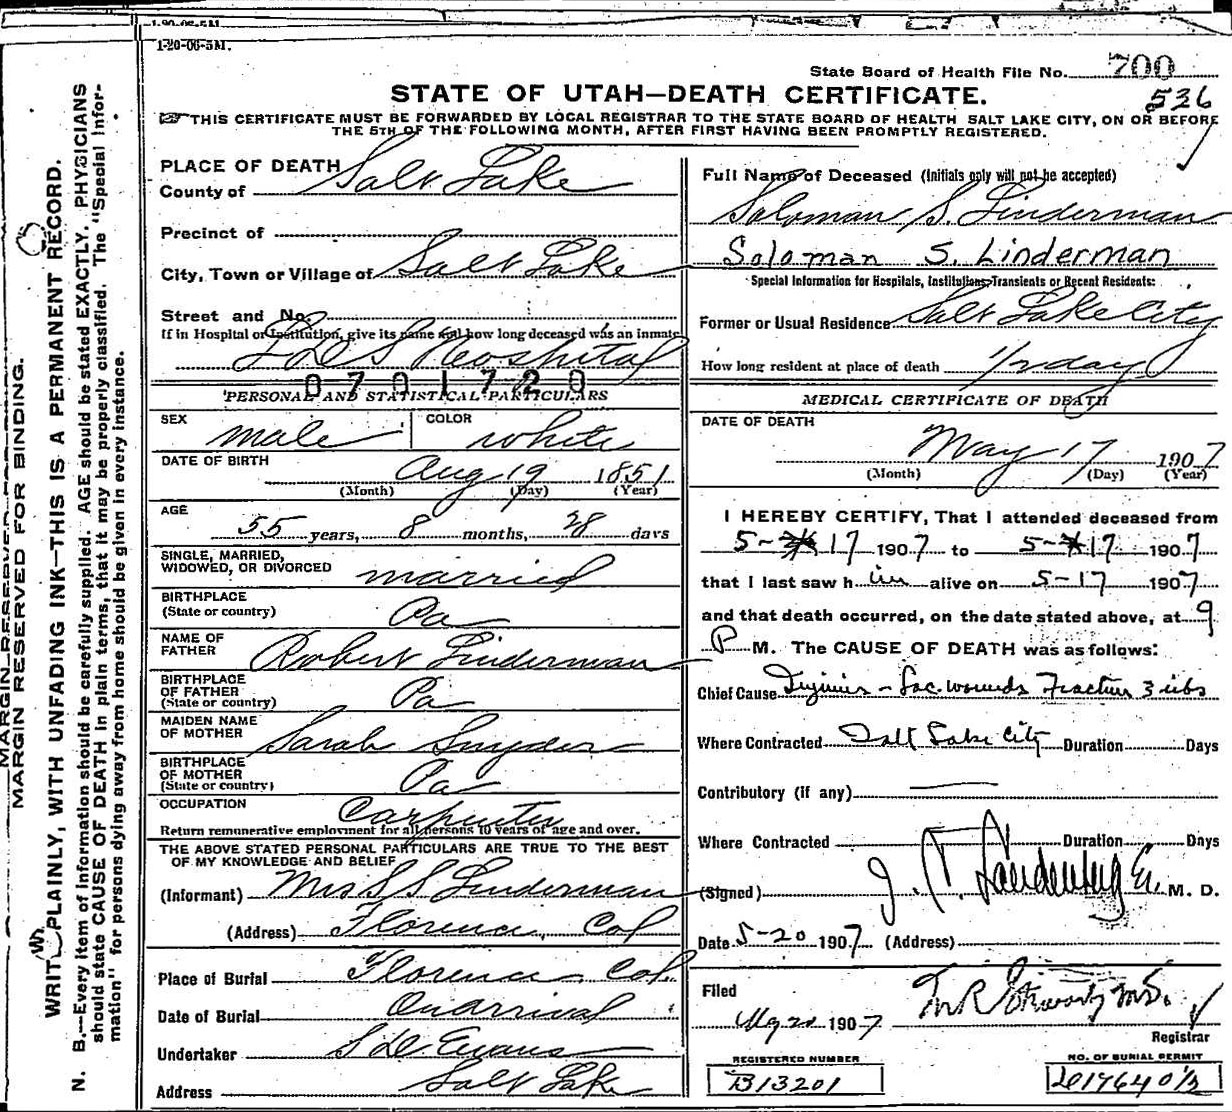 1-20-06-5M.
State Board of Health File No. 700
536
STATE OF UTAH—DEATH CERTIFICATE.
THIS CERTIFICATE MUST BE FORWARDED BY LOCAL REGISTRAR TO THE STATE BOARD OF HEALTH SALT LAKE CITY, ON OR BEFORE
THE 5TH OF THE FOLLOWING MONTH, AFTER FIRST HAVING BEEN PROMPTLY REGISTERED.
MARGIN RESERVED FOR BINDING.
WRITE PLAINLY, WITH UNFADING INK—THIS IS A PERMANENT RECORD.
N. B.—Every item of information should be carefully supplied. AGE should be stated EXACTLY. PHYSICIANS
should state CAUSE OF DEATH in plain terms, that it may be properly classified. The "Special Infor-
mation" for persons dying away from home should be given in every instance.
PLACE OF DEATH
County of Salt Lake
Precinct of
City, Town or Village of Salt Lake
Street and No.
If in Hospital or Institution, give its name and how long deceased was an inmate
L D S Hospital
0701720
PERSONAL AND STATISTICAL PARTICULARS
SEX male COLOR white
DATE OF BIRTH Aug 19 1851
(Month) (Day) (Year)
AGE
55 years, 8 months, 28 days
SINGLE, MARRIED,
WIDOWED, OR DIVORCED married
BIRTHPLACE
(State or country) Pa
NAME OF
FATHER Robert Linderman
BIRTHPLACE
OF FATHER
(State or country) Pa
MAIDEN NAME
OF MOTHER Sarah Snyder
BIRTHPLACE
OF MOTHER
(State or country) Pa
OCCUPATION Carpenter
Return remunerative employment for all persons 10 years of age and over.
THE ABOVE STATED PERSONAL PARTICULARS ARE TRUE TO THE BEST
OF MY KNOWLEDGE AND BELIEF
(Informant) Mrs S S Linderman
(Address) Florence, Col
Place of Burial Florence Col.
Date of Burial On arrival
Undertaker S D Evans
Address Salt Lake
Full Name of Deceased (Initials only will not be accepted)
Soloman S. Linderman
Soloman S. Linderman
Special Information for Hospitals, Institutions, Transients or Recent Residents:
Former or Usual Residence Salt Lake City
How long resident at place of death 1/2 day
MEDICAL CERTIFICATE OF DEATH
DATE OF DEATH
May 17 1907
(Month) (Day) (Year)
I HEREBY CERTIFY, That I attended deceased from
5-17 1907 to 5-17 1907
that I last saw him alive on 5-17 1907
and that death occurred, on the date stated above, at 9
P M. The CAUSE OF DEATH was as follows:
Chief Cause Injuries - Lac. wounds Fracture 3 ribs
Where Contracted Salt Lake City Duration Days
Contributory (if any)
Where Contracted Duration Days
(Signed) M. D.
Date 5-20 1907 (Address)
Filed
20 1907
Registrar
REGISTERED NUMBER
B13201
NO. OF BURIAL PERMIT